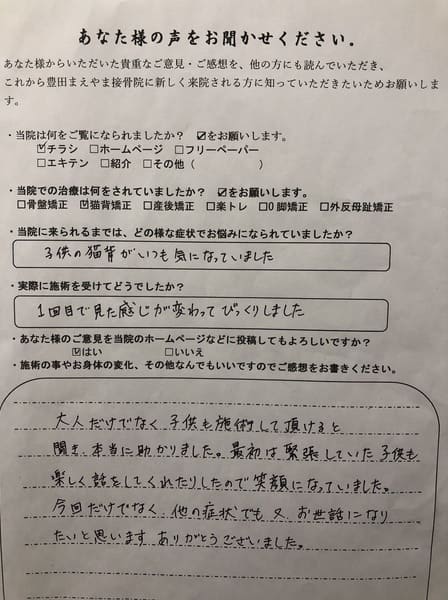 あなた様の声をお聞かせください.
あなた様からいただいた貴重なご意見・ご感想を、他の方にも読んでいただき、
これから豊田まえやま接骨院に新しく来院される方に知っていただきたいためお願いしま
す。
・当院は何をご覧になられましたか？ ☑をお願いします。
☑チラシ □ホームページ □フリーペーパー
□エキテン □紹介 □その他（ ）
・当院での治療は何をされていましたか？ ☑をお願いします。
□骨盤矯正 ☑猫背矯正 □産後矯正 □楽トレ □O脚矯正 □外反母趾矯正
・当院に来られるまでは、どの様な症状でお悩みになられていましたか？
子供の猫背がいつも気になっていました
・実際に施術を受けてどうでしたか？
1回目で見た感じが変わってびっくりしました
・あなた様のご意見を当院のホームページなどに投稿してもよろしいですか？
☑はい □いいえ
・施術の事やお身体の変化、その他なんでもいいですのでご感想をお書きください。
大人だけでなく子供も施術して頂けると
聞き、本当に助かりました。最初は緊張していた子供も
楽しく話をしてくれたりしたので笑顔になっていました。
今回だけでなく、他の症状でも又、お世話になり
たいと思います ありがとうございました。